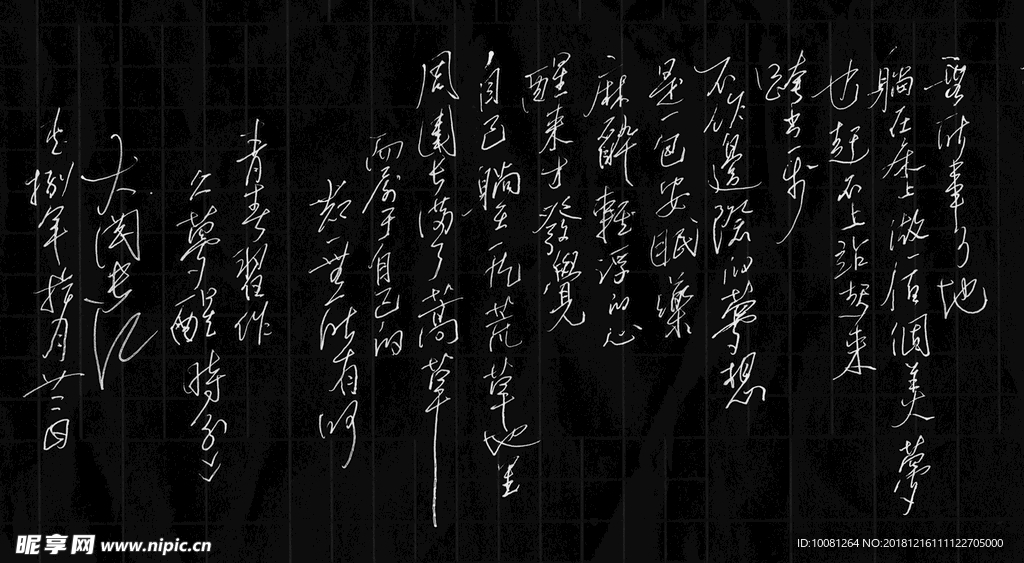 事
躺在床上做個美夢
也起不上站起來
跨出一步
不邊際的夢想
是一包安眠藥
麻醉輕浮的心
醒來才發覺
自己躺在一片荒草地里
周圍長滿了蒿草
而屬于自己的
一無所有啊
青春習作
之夢醒時分
捌年拾月廿二日
昵享网 www.nipic.cn
ID:10081264 NO:20181216111122705000